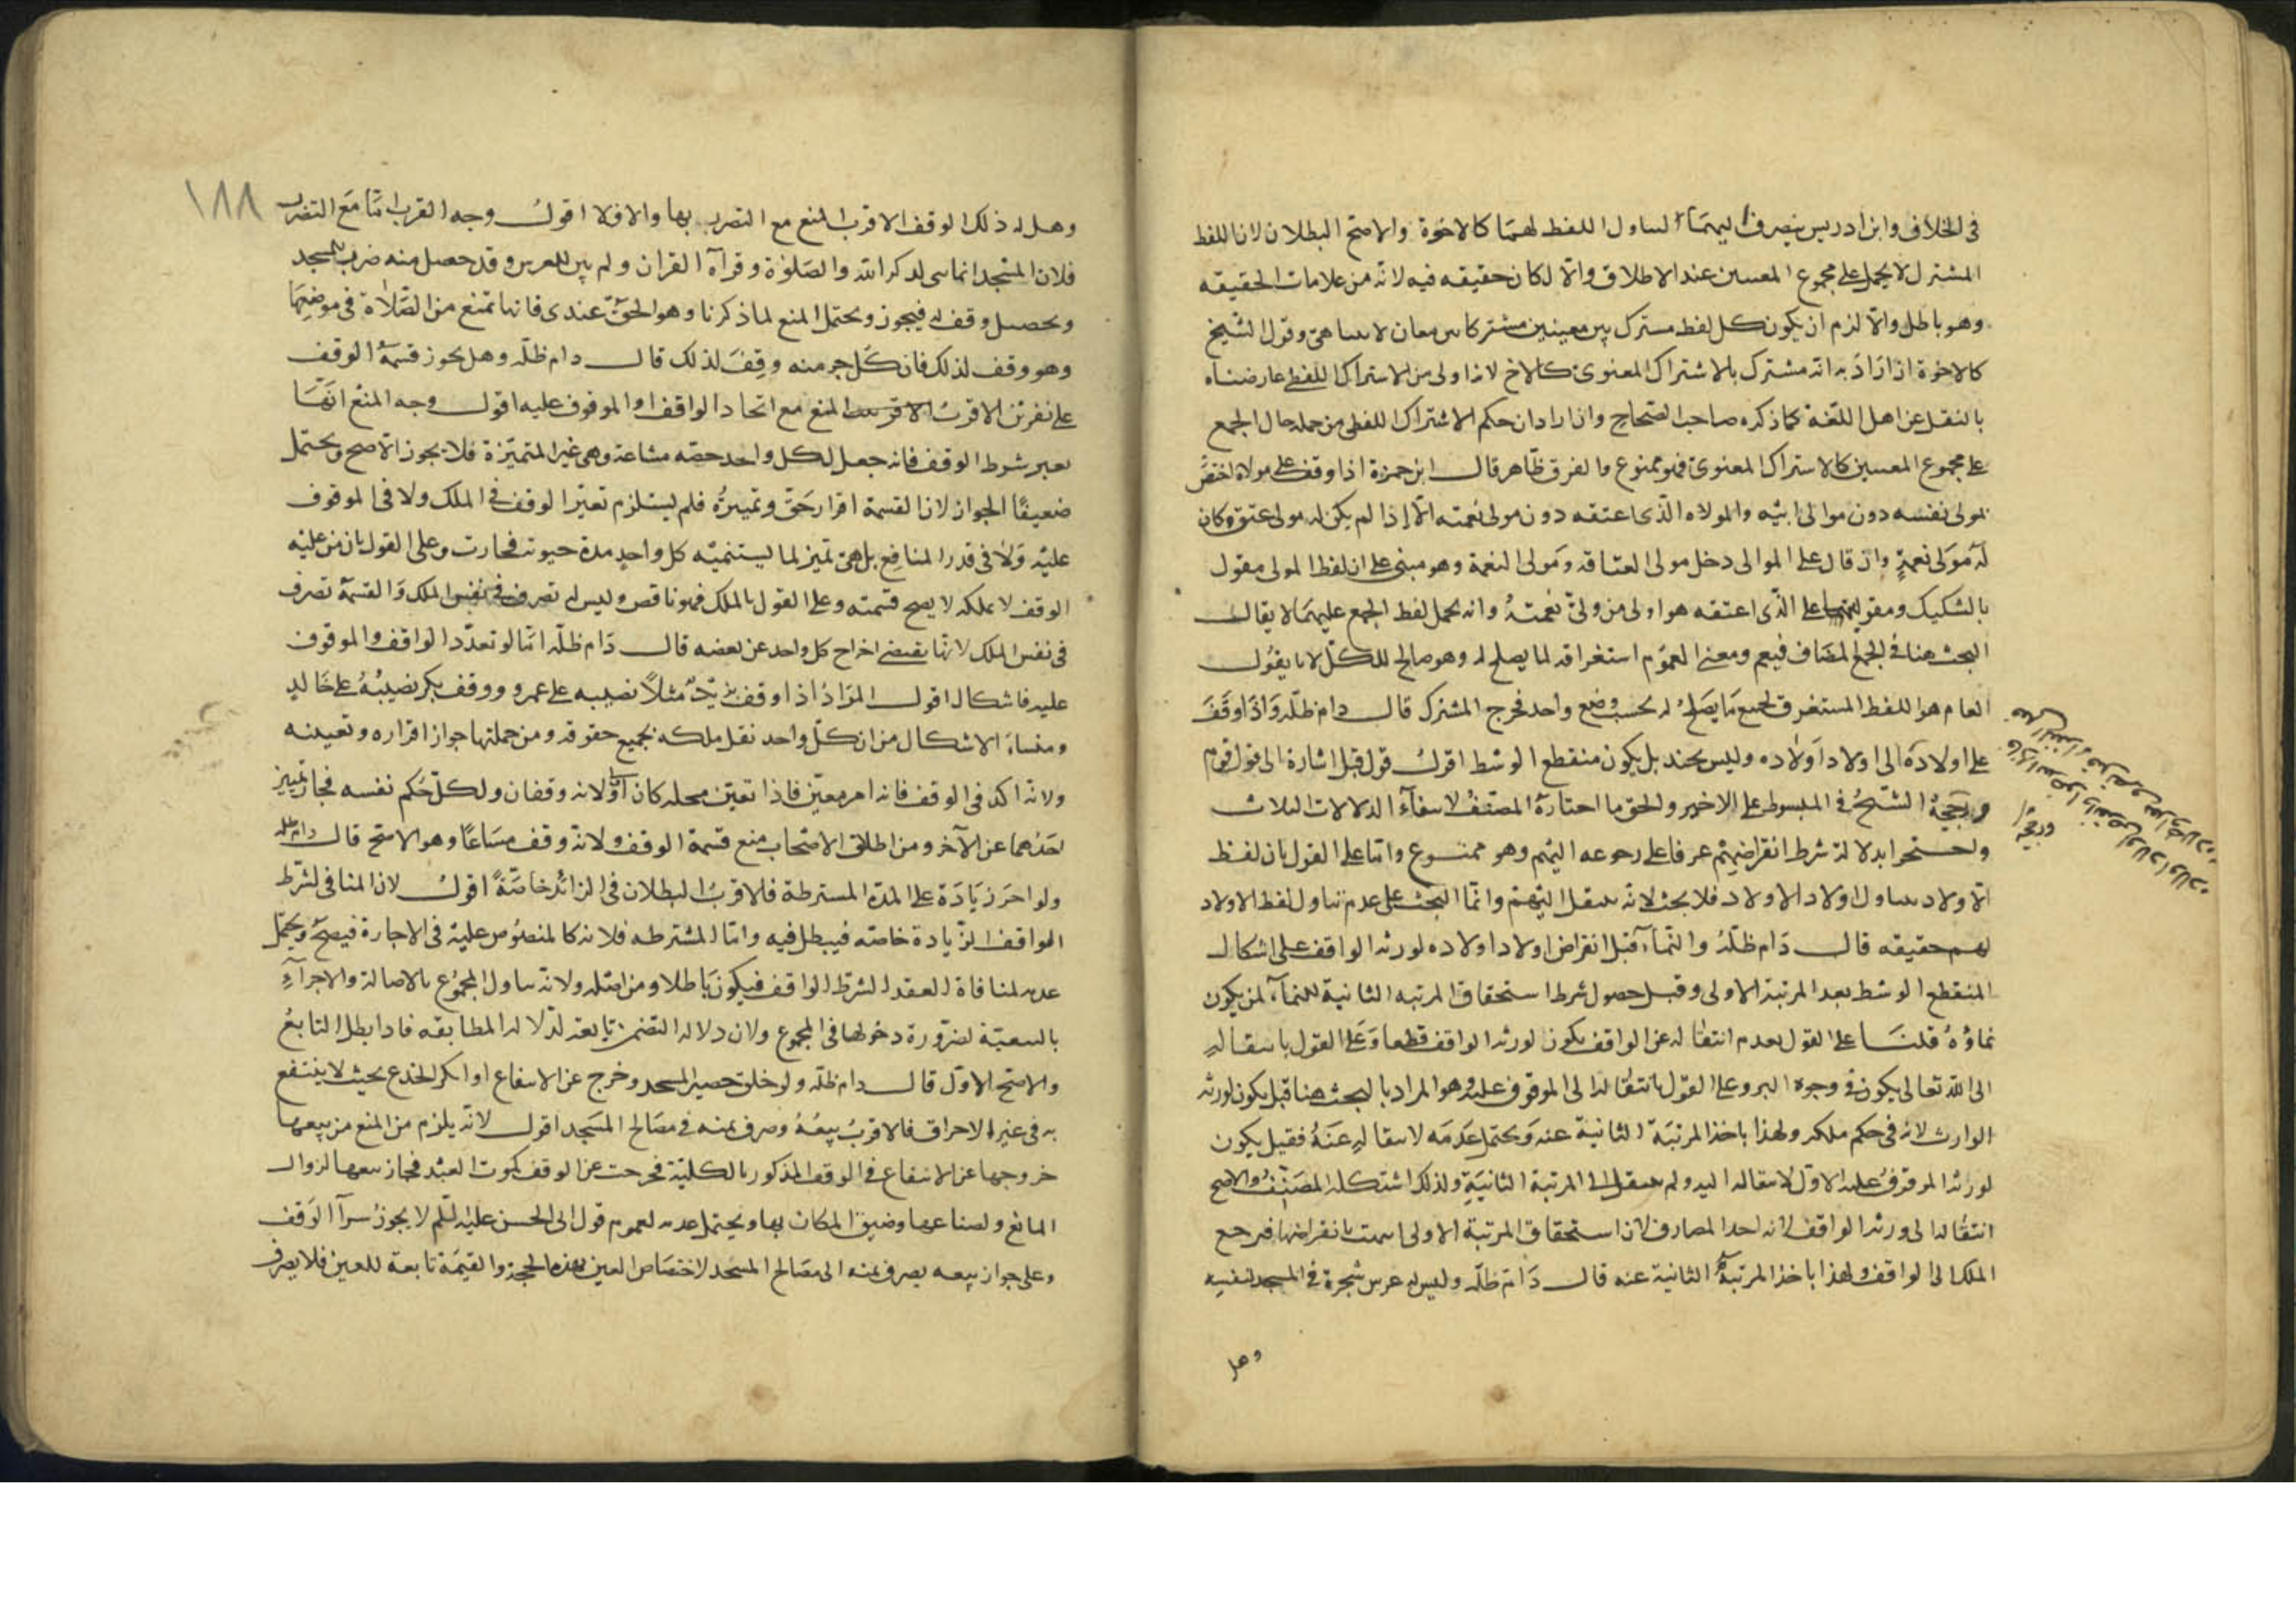 فى الخلاف وابن ادريس ينصرف اليهما لتناول اللفظ لهما كالاخوة والاصح البطلان لان اللفظ
المشترك لا يحمل على مجموع المعنيين عند الاطلاق والا لكان حقيقه فيه لانه من علامات الحقيقه
وهو باطل والا لزم ان يكون كل لفظ مشترك بين معينين مشتركا بين معان لا تتناهى وقول الشيخ
كالاخوة ان اراد به انه مشترك بالاشتراك المعنوى كالاخ لانه اولى من الاشتراك اللفظى عارضناه
بالنقل عن اهل اللغة كما ذكره صاحب الصحاح وان اراد ان حكم الاشتراك اللفظى من حمله حال الجمع
على مجموع المعنيين كالاشتراك المعنوى فهو ممنوع والفرق ظاهر قال ابن حمزة اذا وقف على مولاه اختص
بمولى نفسه دون موالى ابيه والمولاه الذى اعتقه دون مولى نعمته الا اذا لم يكن له مولى عتق وكان
له مولى نعمة وان قال على الموالى دخل مولى العتاقه ومولى النعمة وهو مبنى على ان لفظ المولى مقول
بالتشكيك ومقوليتها على الذى اعتقه هو اولى من ولى نعمته وانه يحمل لفظ الجمع عليهما لا يقال
البحث هنا فى الجمع المضاف فيعم ومعنى العموم استغراقه لما يصلح له وهو صالح للكل لانا نقول
العام هو اللفظ المستغرق لجميع ما يصلح له بحسب وضع واحد فخرج المشترك قال دام ظله واذا وقف
على اولاده الى اولاد اولاده وليس بحند بل يكون منقطع الوسط اقول قوله قيل اشارة الى قول قوم
ورجحه الشيخ فى المبسوط على الاخير والحق ما اختاره المصنف لانتفاء الدلالات الثلاث
واحتجوا بدلالة شرط انقراضهم عرفا على رجوعه اليهم وهو ممنوع واما على القول بان لفظ
الاولاد يتناول اولاد الاولاد فلا بحث لانه ينتقل اليهم وانما البحث على عدم تناول لفظ الاولاد
لهم حقيقه قال دام ظله والنماء قبل انقراض اولاد اولاده لورثة الواقف على اشكال
المنقطع الوسط بعد المرتبة الاولى وقبل حصول شرط استحقاق المرتبه الثانية للنماء لمن يكون
نماؤه قلنا على القول بعدم انتقاله عن الواقف يكون لورثه الواقف قطعا وعلى القول بانتقاله
الى الله تعالى يكون فى وجوه البر وعلى القول بانتقاله الى الموقوف عليه وهو المراد بالبحث هنا قيل يكون لورثه
الوارث لانه فى حكم ملكه ولهذا ياخذ المرتبة الثانية عنه ويحتمل عدمه لانتقاله عنه فقيل يكون
لورثه الموقوف عليه الاول لانتقاله اليه ولم ينتقل الى المرتبة الثانية ولذلك استشكله المصنف والاصح
انتقاله الى ورثه الواقف لانه احد المصارف لان استحقاق المرتبة الاولى انتهت بانقراضها فيرجع
الملك الى الواقف ولهذا ياخذ المرتبة الثانية عنه قال دام ظله وليس له غرس شجرة فى المسجد لنفسه
وهل
١٨٨
وهل له ذلك الوقف الاقرب المنع مع التضرر بها والا فلا اقول وجه القرب اما مع التضرر
فلان المسجد انما بنى لذكر الله والصلوة وقرآة القران ولم يبن للغرس وقد حصل منه ضرب للمسجد
ويحصل وقف له فيجوز ويحتمل المنع لما ذكرنا وهو الحق عندى فانها تمنع من الصلاة فى موضعها
وهو وقف لذلك فان كل جزء منه وقف لذلك قال دام ظله وهل يجوز قسمة الوقف
على نفرين الاقرب المنع مع اتحاد الواقف او الموقوف عليه اقول وجه المنع انها
تغيير شرط الوقف فانه جعل لكل واحد حصه مشاعة وهى غير المتميزة فلا يجوز الاصح ويحتمل
ضعيفا الجواز لان القسمة اقرار حق وتميزه فلم يستلزم تغير الوقف فى الملك ولا فى الموقوف
عليه ولا فى قدر المنافع بل هى تميز لما يستنميه كل واحد مدة حيوته فجازت وعلى القول بان من عليه
الوقف لا يملكه لا يصح قسمته وعلى القول بالملك فهو ناقص وليس له تصرف فى نفس الملك والقسمة تصرف
فى نفس الملك لانها تقتضى اخراج كل واحد عن بعضه قال دام ظله اما لو تعدد الواقف والموقوف
عليه فاشكال اقول المراد اذا وقف زيد مثلا نصيبه على عمرو ووقف بكر نصيبه على خالد
ومنشاء الاشكال من ان كل واحد نقل ملكه بجميع حقوقه ومن جملتها جواز اقراره وتعيينه
ولانه اكد فى الوقف فانه امر معين فاذا تعين محله كان اولى ولانه وقفان ولكل حكم نفسه فجاز تمييز
احدهما عن الآخر ومن اطلاق الاصحاب منع قسمة الوقف ولانه وقف مشاعا وهو الاصح قال دام ظله
ولو اجر زيادة على المدة المشترطة فالاقرب البطلان فى الزائد خاصة اقول لان المنافى لشرط
الواقف الزيادة خاصه فيبطل فيه واما المشترطه فلانه كالمنصوص عليه فى الاجارة فيصح ويحتمل
عدمه لمنافاة العقد لشرط الواقف فيكون باطلا ومن اصله ولانه يتناول المجموع بالاصالة والاجزاء
بالتبعية لضرورة دخولها فى المجموع ولان دلاله التضمن تابعة لدلاله المطابقه فاذا بطل التابع
والاصح الاول قال دام ظله ولو خلق حصير المسجد وخرج عن الانتفاع او انكسر الجذع بحيث لا ينتفع
به فى غير الاحراق فالاقرب بيعه وصرف ثمنه فى مصالح المسجد اقول لانه يلزم من المنع من بيعها
خروجها عن الانتفاع فى الوقف المذكور بالكلية فخرجت عن الوقف كموت العبد فجاز بيعها لزوال
المانع ولضياعها وضيق المكان بها ويحتمل عدمه لعموم قول ابى الحسن عليه السلم لا يجوز شرآ الوقف
وعلى جواز بيعه يصرف ثمنه الى مصالح المسجد لاختصاص العين بهذه الحجة والقيمة تابعة للعين فلا يصرف